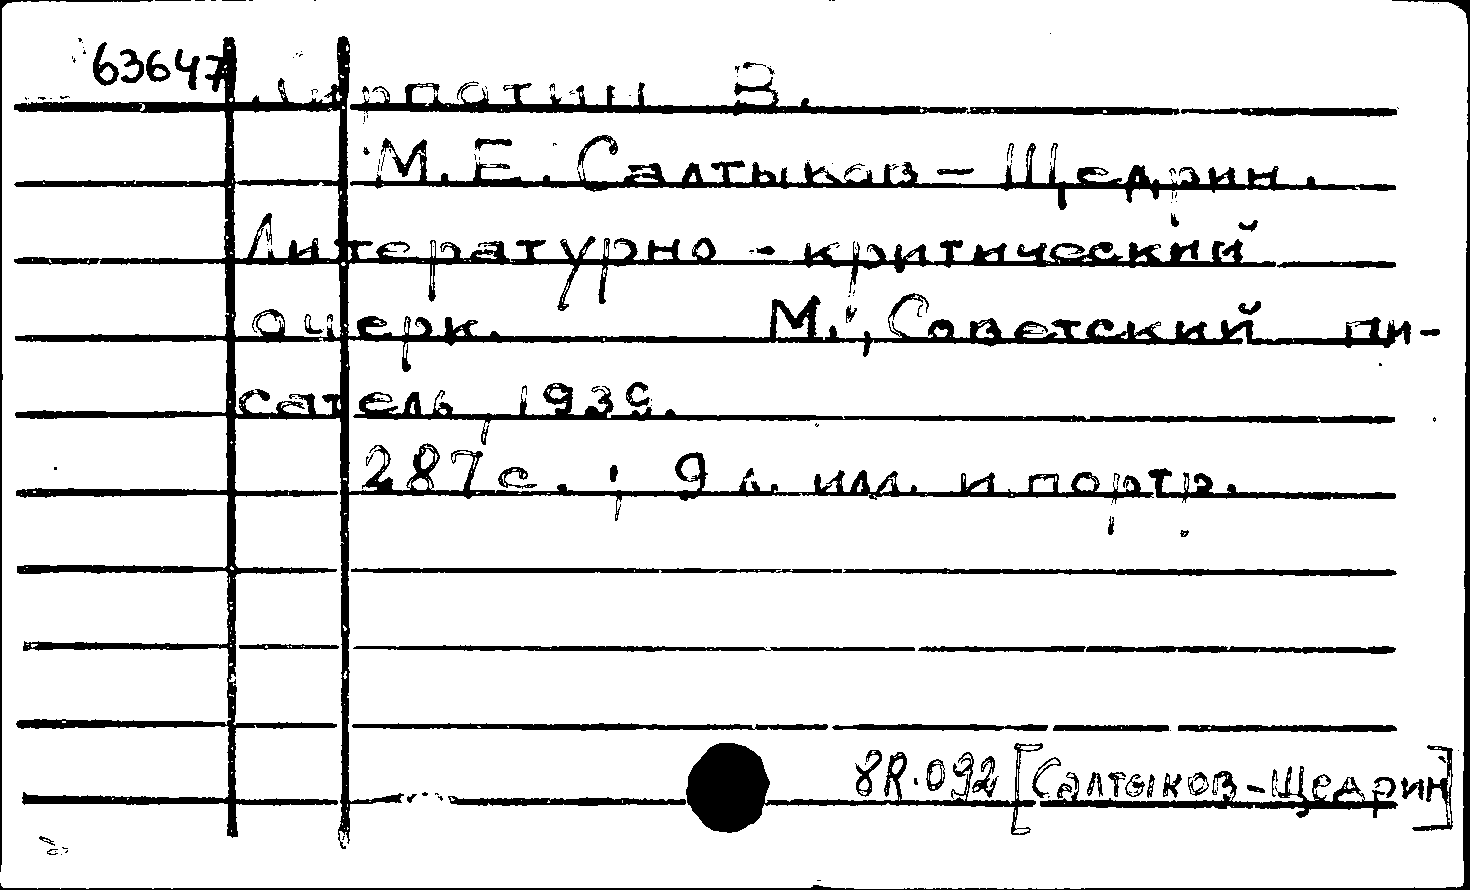 63647 Кирпотин В.
М. Е. Салтыков-Щедрин.
Литературно-критический
очерк. М., Советский пи-
сатель, 1939.
287 с.; 9 л. илл. и портр.
8R.092 [Салтыков-Щедрин]